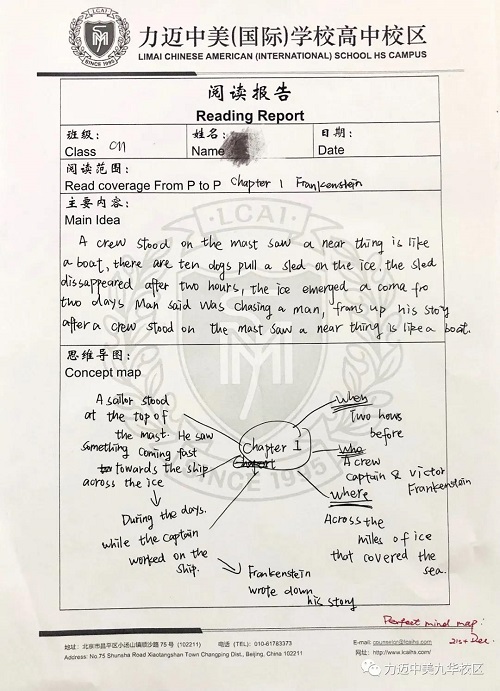 力迈中美(国际)学校高中校区
LIMAI CHINESE AMERICAN (INTERNATIONAL) SCHOOL HS CAMPUS
LCAI
SINCE 1995
阅读报告
Reading Report
班级: 姓名: 日期:
Class 011 Name Date
阅读范围:
Read coverage From P to P Chapter 1 Frankenstein
主要内容:
Main Idea
A crew stood on the mast saw a near thing is like
a boat, there are ten dogs pull a sled on the ice, the sled
disappeared after two hours, the ice emerged a coma fro
two days Man said was chasing a man, frans up his stoy
after a crew stood on the mast saw a near thing is like a boat.
思维导图:
Concept map
A sailor stood
at the top of
the mast. He saw
something coming fast
towards the ship
across the ice
During the days.
while the captain
worked on the
ship.
Frankenstein
wrote down
his stony
Chapter 1
when
Two hous
before
who
A crew
Captain & Victor
Frankenstein
where
Across the
miles of ice
that covered the
sea.
LCAI
SINCE 1995
Perfect mind map!
21st Dec.
地址:北京市昌平区小汤山镇顺沙路 75 号 (102211) 电话 (TEL):010-61783373 E-mail: counselor@lcaihs.com
Address: No.75 Shunsha Road Xiaotangshan Town Changping Dist., Beijing, China 102211 网址: http://www.lcaihs.com/
力迈中美九华校区